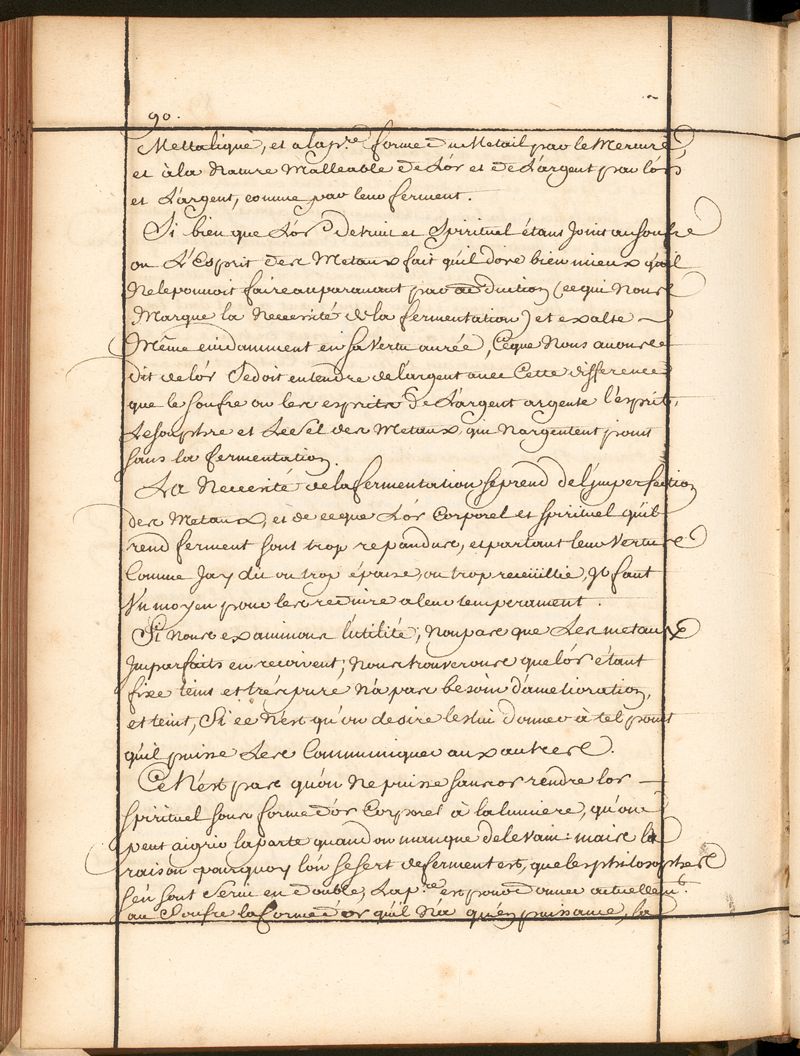 90.
Mettalique, et a la p.re forme du Metail par le Mercure,
et à la Nature Malleable de L'or et de L'argent par l'or
et L'argent, comme par leur ferment.
Si bien que L'or detruit et Spirituel étant Joint au soufre
ou L'Esprit des Metaux fait qu'il dore bien mieux qu'il
Ne le pouvoit faire auparavant par ad duction (ce qui Nous
Marque la Necessité de la fermentation) et exalte
Même evidamment en sa vertu aurée, Ce que Nous avons
dit de l'or Se doit entendre de l'argent avec Cette difference
que le soufre ou les esprits de L'argent argente l'esprit,
Le souphre et Le sel des Metaux qui N'argentent point
sans la fermentation.
La Necessité de la fermentation se prend de l'imperfection
des Metaux, et de ce que L'or Corporel et spirituel qu'il
rend ferment sont trop repandus, et partant leur vertu
Comme J'ay dit ou trop épaisse, ou trop receüillie, Il faut
Un moyen pour les reduire a leur temperament.
Si Nous examinons l'utilité, Non pas que Les metaux
Imparfaits en recoivent; Nous trouverons que l'or étant
fixe teint et trés pure N'a pas besoin d'amelioration,
et teint, Si ce N'est qu'on desire les lui donner à tel point
qu'il puisse Les Communiquer aux autres.
Ce N'est pas qu'on Ne puisse sans or rendre l'or
spirituel sous forme d'or Corporel à la lumiere, qu'on
peut aigrir la parte quand on manque de levain: mais la
raison pourquoy l'on se sert de ferment est, que les philosophes
s'en sont Servi en double, La p.re est pour donner actuellem.t
au Soufre la forme d'or qu'il N'a qu'en puissance, la